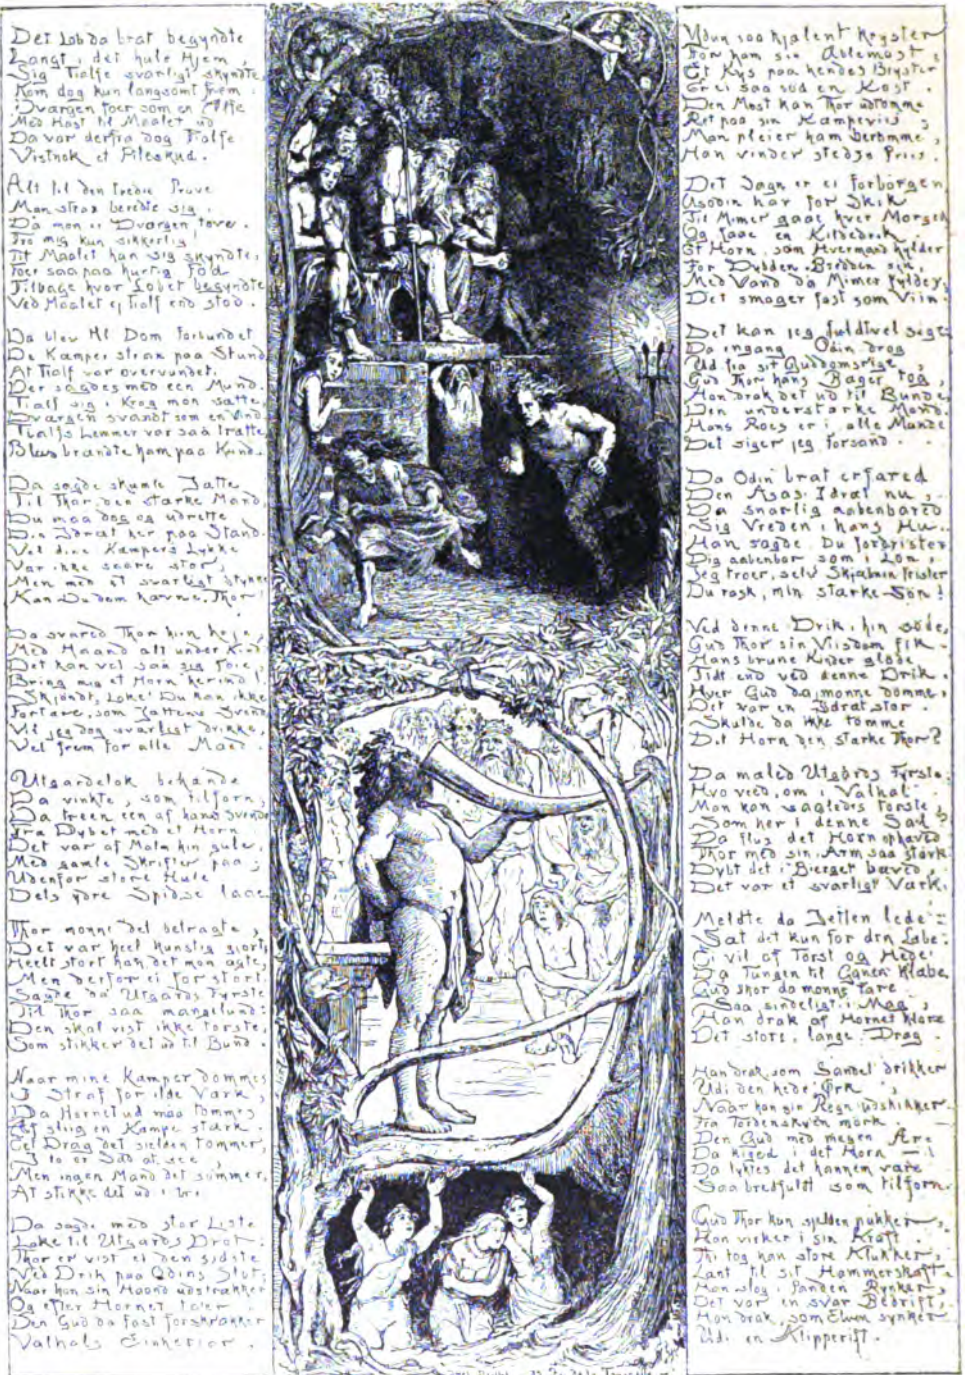 Det Løb da brat begyndte
Langt i det hule Hjem,
Sig Tialfe svarligt skyndte,
Kom dog kun langsomt frem.
Dværgen foer som en Alfe
Med Hast til Maalet ud
Da var derfra dog Tialfe
Vistnok et Pileskud.

Alt til den tredie Prøve
Man strax beredte sig.
Da mon ei Dværgen tøve.
Tro mig kun sikkerlig
Til Maalet han sig skyndte,
Foer saa paa hurtig Fod
Tilbage hvor Løbet begyndte
Ved Maalet ej Tialf end stod.

Da blev Dom forkyndet
De Kæmper strax paa Stund
At Tialf var overvundet.
Der sagdes med een Mund.
Tialf sig i Krog mon sætte,
Dværgen svandt som en Vind
Tialfs Lemmer var saa trætte
Blus brændte ham paa Kind.

Da sagde skumle Jætte
Til Thor den stærke Mand,
Du maa dog og udrette
Din Idræt her paa Stand.
Vel dine Kæmpers Lykke
Var ikke saare stor,
Men med et svarligt Stykke
Kan Du dem hævne, Thor!

Da svared Thor hin
Med Haand alt under Kind
Det kan vel saa sig føie,
Bring mig et Horn herind!
Skjøndt, Loke! Du kan ikke
Fortære, som Jættens Svend
Vil jeg dog svarligst drikke,
Vel frem for alle Mænd.

Utgardelok behænde
Da vinkte, som tilforn,
Da treen een af hans Svende
Fra Dybet med et Horn
Det var af Malm hin gule,
Med gamle Skrifter paa,
Udenfor store Hule
Dets ydre Spidse laae

Thor monne det betragte,
Det var heel kunstig giort,
Heelt stort han det mon agte,
Men derfor ei for stort.
Sagde da Utgards Fyrste
Til Thor saa mangelund:
Den skal vist ikke tørste,
Som stikker det ud til Bund.

Naar mine Kæmper dømmes
I Straf for ilde Værk,
Da Hornet ud maa tømmes
Af sliig en Kæmpe stærk
Eet Drag det sielden tømmer,
I to er Sæd at see,
Men ingen Mand det sømmer,
At stikke det ud i tre.

Da sagde med stor Liste
Loke til Utgards Drot:
Thor er vist ei den sidste
Ved Drik paa Odins Slot;
Naar han sin Haand udstrækker
Og efter Hornet
Den Gud da fast forskrækker
Valhals Einherior.

Ydun saa kjælent kryster
For ham sin Æblemost,
Et Kys paa hendes Bryster
Er ei saa sød en Kost.
Den Most kan Thor udtømme
Ret paa sin Kæmpeviis,
Man pleier ham berømme,
Han vinder stedse Priis.

Det Sagn er ei forborgen
Asodin har for Skik
Til Mimer gaae hver Morgen
Og faae en Kildedrik.
Et Horn, som Hvermand kylder
For Dybden, Bredden sin,
Med Vand da Mimer fylder,
Det smager fast som Viin.

Det kan jeg fuldtvel sige
Da engang Odin drog
Ud fra sit Guddomsrige,
Gud Thor hans Bæger tog,
Han drak det ud til Bunde
Den understærke Mand.
Hans Roes er i alle Munde
Det siger jeg forsand.

Da Odin brat erfared
Den Asas Idræt nu,
Da snarlig aabenbared
Sig Vreden i hans Hu.
Han sagde: Du forfrister
Dig aabenbar som Løn,
Jeg troer, selv Skjalmin frister
Du rask, min stærke Søn!

Ved denne Drik, hin søde,
Gud Thor sin Viisdom fik.
Hans brune Kinder gløde
Tidt end ved denne Drik.
Hver Gud da monne dømme,
Det var en Idræt stor.
Skulde da ikke tømme
Dit Horn den stærke Thor?

Da mæled Utgards Fyrste:
Hvo veed, om i Valhal
Man kan saaledes tørste,
Som her i denne Sal?
Da flux det Horn ophæved
Thor med sin Arm saa stærk
Dybt det i Bierget bæved,
Det var et svarligt Værk.

Meldte da Jetten lede:
Sæt det kun for din Læbe.
Ei vil af Tørst og Hede
Da Tungen til Ganen klæbe.
Gud Thor da monne fare
Saa sindeligt i Mag,
Han drak af Hornet klare
Det store, lange Drag.

Han drak, som Sandet drikker
Udi den hede Ørk,
Naar han sin Regn udskikker
Fra Tordenskyen mørk.
Den Gud med megen Ære
Da kiged i det Horn —
Da tyktes det hannem være
Saa bredfuldt som tilforn.

Gud Thor kun sjelden pukker,
Han virker i sin Kraft.
Thi tog han store Klukker,
Lænt til sit Hammerskaft.
Han slog i Panden Rynker,
Det var en svar Bedrift,
Han drak, som Elven synker
Udi en Klipperift.